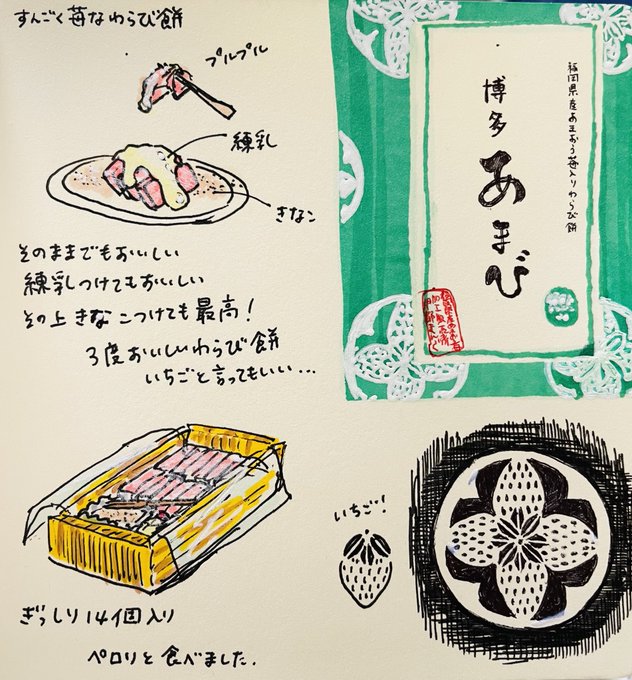 すんごく苺なわらび餅
プルプル
練乳
きなこ
そのままでもおいしい
練乳つけてもおいしい
その上きなこつけても最高!
3度おいしいわらび餅
いちごと言ってもいい...
福岡県産あまおう苺入りわらび餅
博多
あまび
いちご!
ぎっしり14個入り
ペロリと食べました.